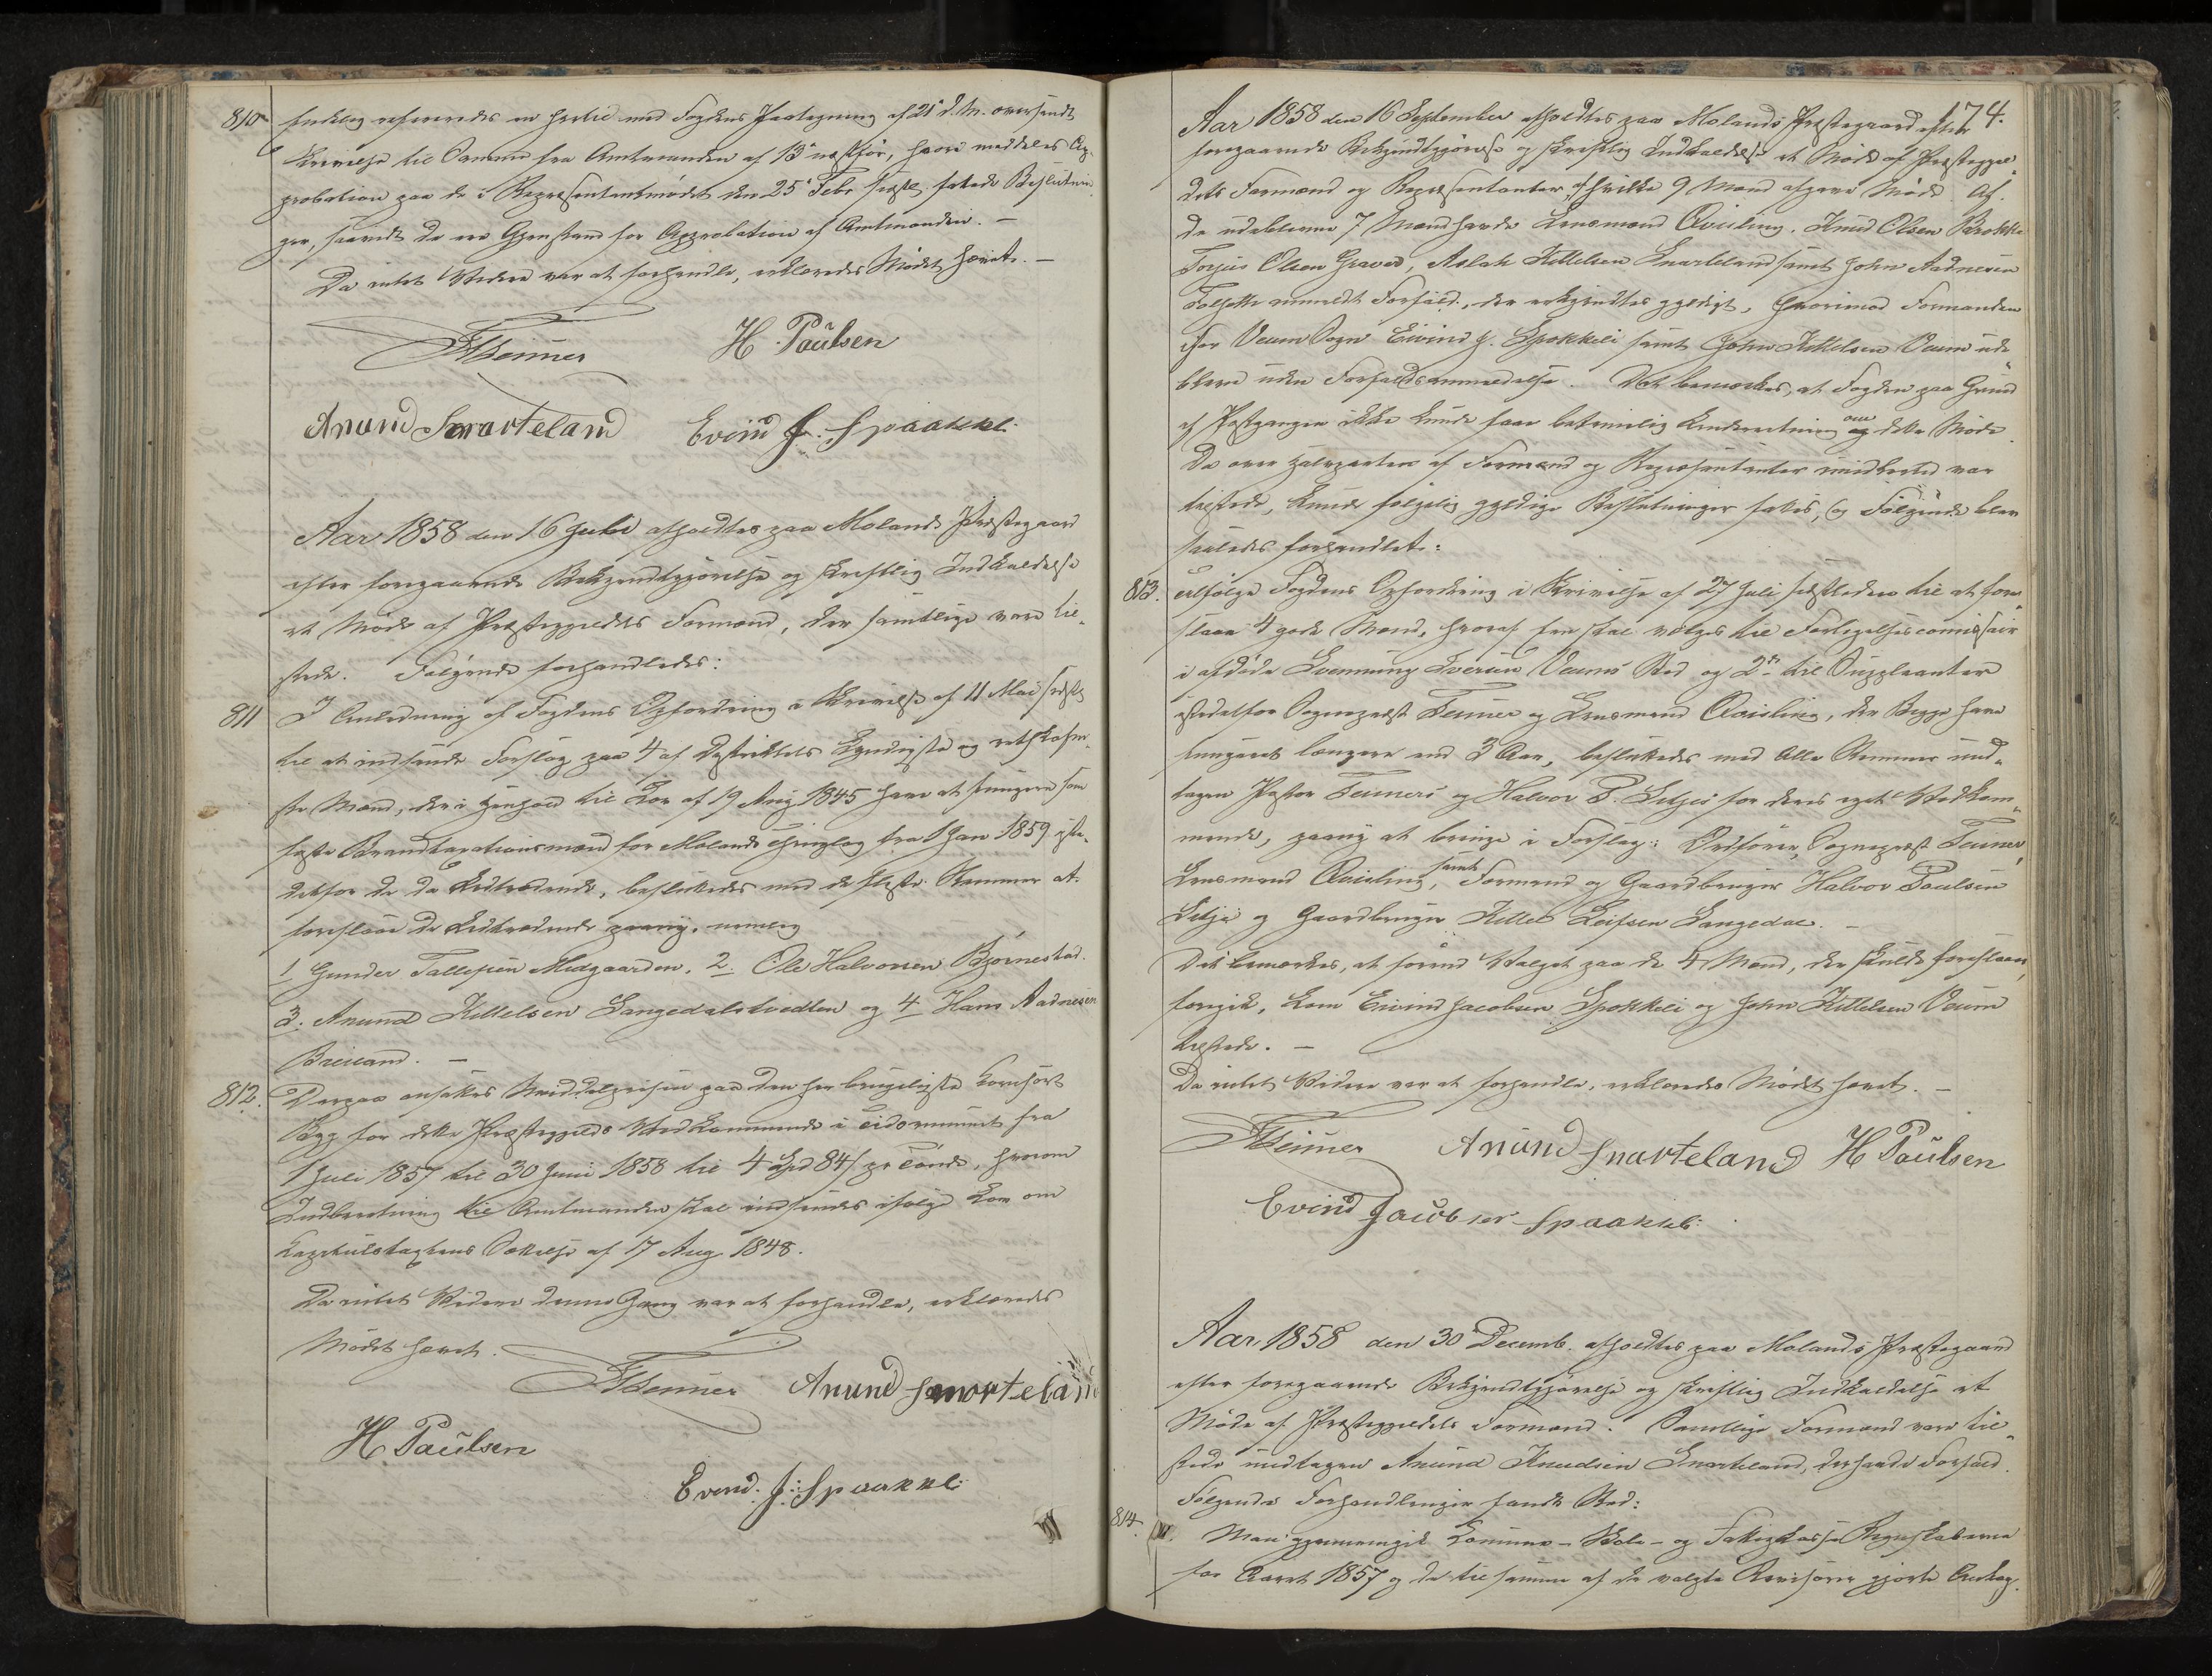 810 Endelig refereredes en hertil med Fogdens Paategning af 21de d. M. oversendt
Skrivelse til Ordføren fra Amtmanden af 13de næstfør, hvori meddeles Ap-
probation paa de i Repræsentantmødet den 25de Febr sidstl. fattede Beslutnin-
ger, saavidt de ere Gjenstand for Approbation af Amtmanden. —
Da intet Videre var at forhandle, erklæredes Mødet hævet. —
Teinner H. Paulsen
Anund Snarteland Evind J. Spaakkli
Aar 1858 den 16 Juli afholdtes paa Molands Præstegaard
efter foregaaende Bekjendtgjørelse og skriftlig Indkaldelse
et Møde af Præstegjeldets Formænd, der samtlige vare til-
stede. Følgende forhandledes:
811 I Anledning af Fogdens Opfordring i Skrivelse af 11 Mai sidstl
til at indsende Forslag paa 4 af Distriktets kyndigste og retskafne-
ste Mænd, der i Henhold til Lov af 19 Aug 1845 have at fungere som
faste Brandtaxationsmænd for Molands Thinglag fra 1 Jan 1859 iste-
detfor de da Udtrædende, besluttedes med de fleste Stemmer at
foreslaae de Udtrædende paany, nemlig
1. Gunder Tallefsen Midgaarden, 2. Ole Halvorsen Bjørnestad.
3. Anund Kittelsen Langedalstvedten og 4 Hans Aadnesen
Breiland. —
812. Derpaa ansattes Middelprisen paa den her brugeligste Kornsort
Byg for dette Præstegjelds Vedkommende i Tidsrummet fra
1 Juli 1857 til 30 Juni 1858 til 4 Spd 84 ʃ pr Tønde, hvorom
Indberetning til Amtmanden skal indsendes ifølge Lov om
Kapitelstaxtens Sættelse af 17 Aug. 1848.
Da intet Videre denne Gang var at forhandle, erklæredes
Mødet hævet.
Teinner Anund Snarteland
H. Paulsen
Evend. J: Spaakkli
174.
Aar 1858 den 16 September afholdtes paa Molands Præstegaard efter
foregaaende Bekjendtgjørelse og skriftlig Indkaldelse et Møde af Præstegjel-
dets Formænd og Repræsentanter, af hvilke 9 Mænd afgave Møde. Af
de udeblevne 7 Mænd havde Lensmand Qvisling, Knud Olsen Brokke
Torjus Olsen Graver, Aslak Kittelsen Snarteland samt John Aadnesen
anmeldt Forfald, der erkjendtes gyldigt, hvorimod Formanden
for Veum Sogn Eivind J. Spokkeli samt John Kittelsen Veum ude-
bleve uden Forfaldsanmeldelse. Det bemærkes, at Fogden paa Grund
af Postgangen ikke kunde faae betimelig Underretning om dette Møde.
Da over Halvparten af Formænd og Repræsentanter imidlertid var
tilstede, kunde følgelig gyldige Beslutninger fattes, og Følgende blev
saaledes forhandlet:
813. Ifølge Fogdens Opfordring i Skrivelse af 27 Juli sidstleden til at fore-
slaae 4 gode Mænd, hvoraf En skal vælges til Forligelsescommissair
i afdøde Svennung Iversen Veums Sted og 2de til Suppleanter
istedetfor Sognepræst Teinner og Lensmand Qvisling, der Begge have
fungeret længere end 3 Aar, besluttedes med Alle Stemmer und-
tagen Pastor Teinners og Halvor P. Liljes for deres eget Vedkom-
mende, paany at bringe i Forslag: Ordfører, Sognepræst Teinner,
Lensmand Qvisling, samt Formand og Gaardbruger Halvor Paulsen
Lilje og Gaardbruger Kittel Leifsen Langedal. —
Det bemærkes, at førend Valget paa de 4 Mænd, der skulde foreslaaes,
foregik, kom Eivind Jacobsen Spokkeli og John Kittelsen Veum
tilstede. —
Da intet Videre var at forhandle, erklæredes Mødet hævet. —
Teinner Anund Snarteland H Paulsen
Evind Jacobsen Spaakkli
Aar 1858 den 30 Decemb. afholdtes paa Molands Præstegaard
efter foregaaende Bekjendtgjørelse og skriftlig Indkaldelse et
Møde af Præstegjeldets Formænd. Samtlige Formænd vare til-
stede undtagen Anund Knudsen Snarteland, der havde Forfald.
Følgende Forhandlinger fandt Sted:
814. Man gjennemgik Commune- Skole- og Fattigkasse Regnskaberne
for Aaret 1857 og de til samme af de valgte Revisorer gjorte Anteg-